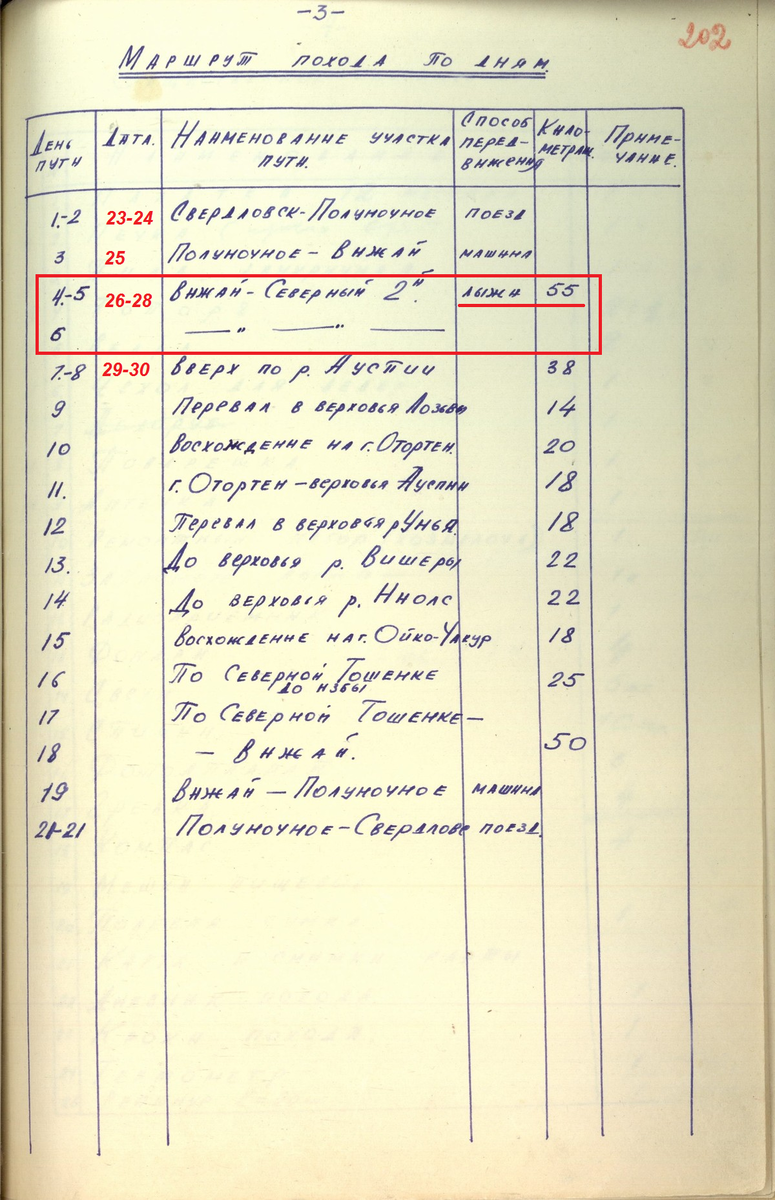 -3-
202
Маршрут похода по дням
День пути | Дата. | Наименование участка пути. | Способ передвижения | Километраж. | Примечание.
1.-2 | 23-24 | Свердловск-Полуночное | поезд
3 | 25 | Полуночное - Вижай | машина
4.-5 | 26-28 | Вижай-Северный 2й. | лыжи | 55
6 | —— " —— " ——
7.-8 | 29-30 | Вверх по р. Аустии | 38
9 | Перевал в верховья Лозьвы | 14
10 | Восхождение на г. Отортен. | 20
11. | г. Отортен - верховья Ауспии | 18
12 | Перевал в верховья р Унья | 18
13. | До верховья р. Вишеры | 22
14 | До верховья р. Ниолс | 22
15 | Восхождение на г. Ойко-Чакур | 18
16 | По Северной Тошемке до избы | 25
17 | По Северной Тошемке -
18 | - Вижай. | 50
19 | Вижай - Полуночное | машина
21-21 | Полуночное-Свердловс | поезд.